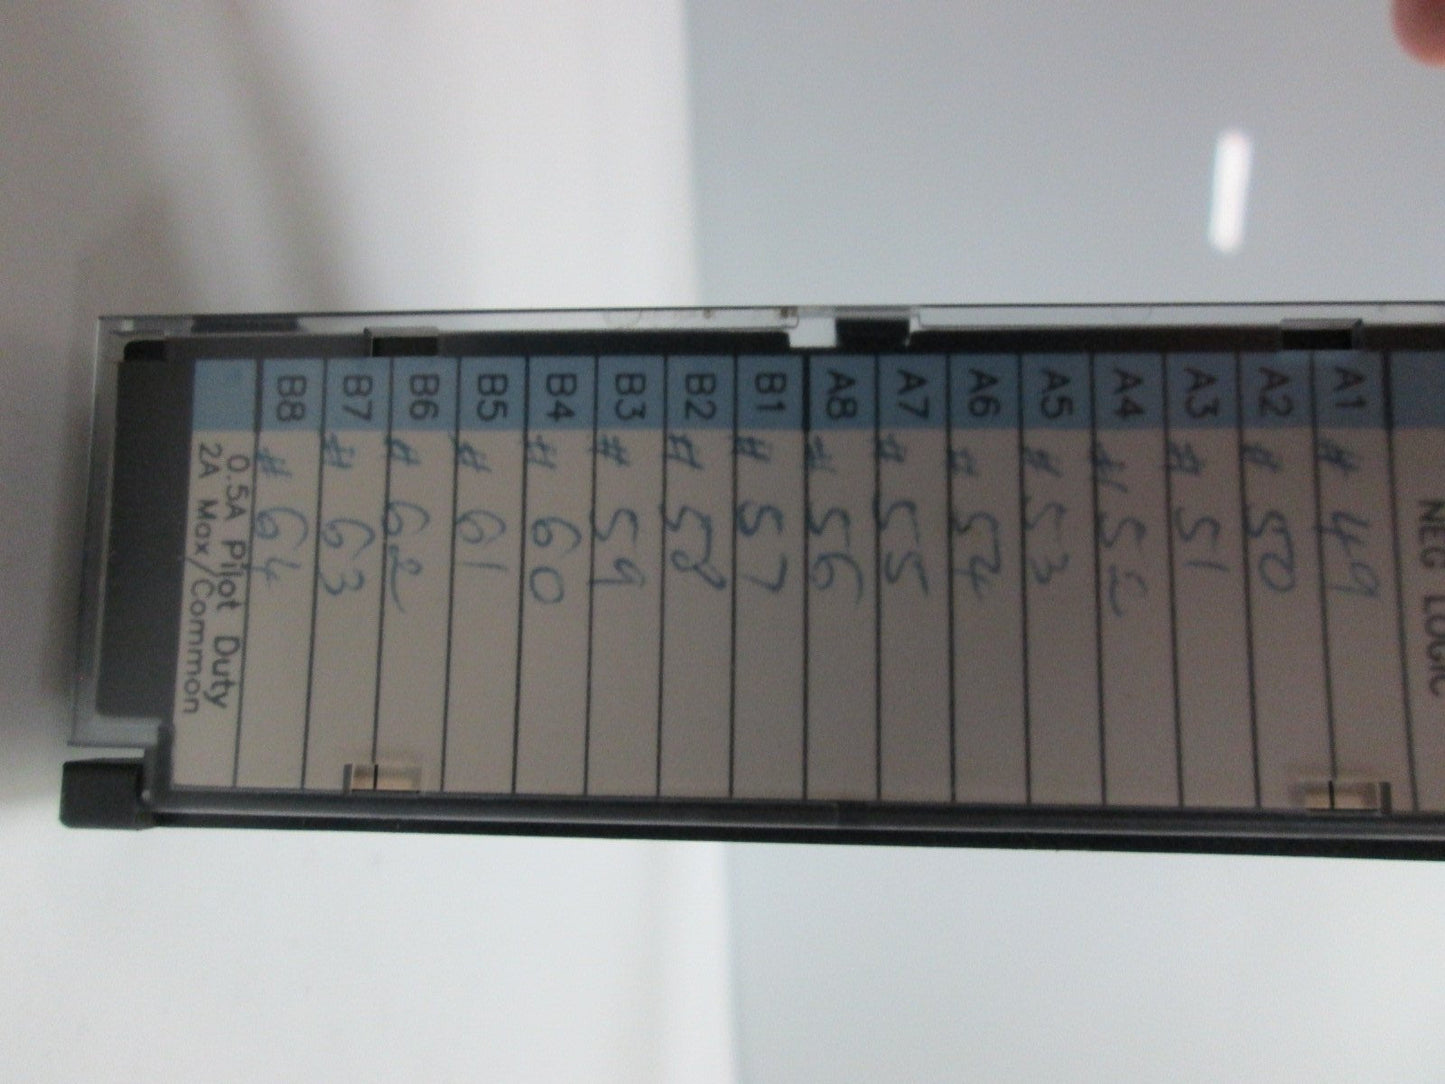 NEG LOGIC
A1 # 49
A2 # 50
A3 # 51
A4 # 52
A5 # 53
A6 # 54
A7 # 55
A8 # 56
B1 # 57
B2 # 58
B3 # 59
B4 # 60
B5 # 61
B6 # 62
B7 # 63
B8 # 64
0.5A Pilot Duty
2A Max/Common